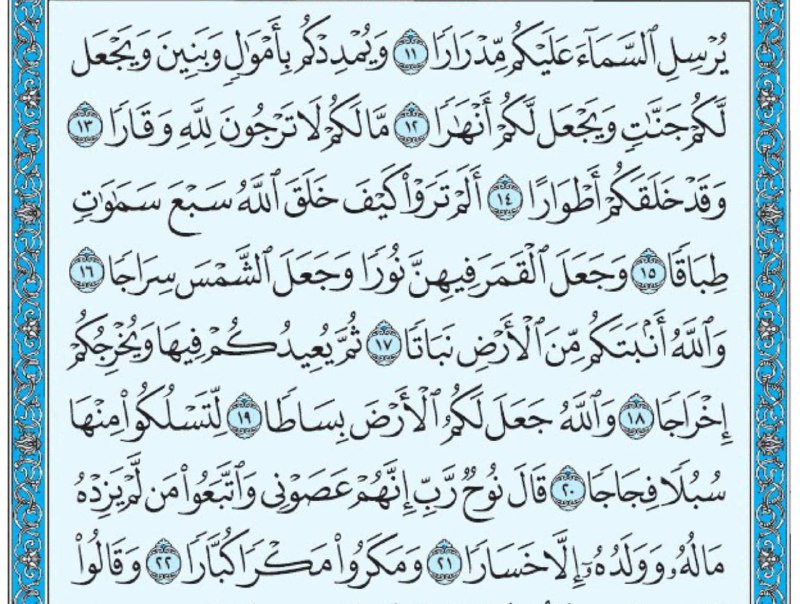 يُرْسِلِ ٱلسَّمَآءَ عَلَيْكُم مِّدْرَارًا ١١ وَيُمْدِدْكُم بِأَمْوَٰلٍ وَبَنِينَ وَيَجْعَل
لَّكُمْ جَنَّٰتٍ وَيَجْعَل لَّكُمْ أَنْهَٰرًا ١٢ مَّا لَكُمْ لَا تَرْجُونَ لِلَّهِ وَقَارًا ١٣
وَقَدْ خَلَقَكُمْ أَطْوَارًا ١٤ أَلَمْ تَرَوْا۟ كَيْفَ خَلَقَ ٱللَّهُ سَبْعَ سَمَٰوَٰتٍ
طِبَاقًا ١٥ وَجَعَلَ ٱلْقَمَرَ فِيهِنَّ نُورًا وَجَعَلَ ٱلشَّمْسَ سِرَاجًا ١٦
وَٱللَّهُ أَنۢبَتَكُم مِّنَ ٱلْأَرْضِ نَبَاتًا ١٧ ثُمَّ يُعِيدُكُمْ فِيهَا وَيُخْرِجُكُمْ
إِخْرَاجًا ١٨ وَٱللَّهُ جَعَلَ لَكُمُ ٱلْأَرْضَ بِسَاطًا ١٩ لِّتَسْلُكُوا۟ مِنْهَا
سُبُلًا فِجَاجًا ٢٠ قَالَ نُوحٌ رَّبِّ إِنَّهُمْ عَصَوْنِى وَٱتَّبَعُوا۟ مَن لَّمْ يَزِدْهُ
مَالُهُۥ وَوَلَدُهُۥٓ إِلَّا خَسَارًا ٢١ وَمَكَرُوا۟ مَكْرًا كُبَّارًا ٢٢ وَقَالُوا۟